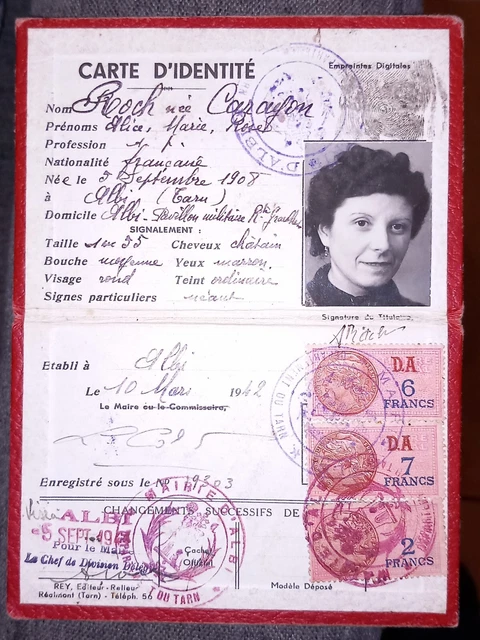 CARTE D'IDENTITÉ
Empreintes Digitales
Nom Roch née Carayon
Prénoms Alice, Marie, Rose
Profession S. P.
Nationalité française
Née le 5 Septembre 1908
à Albi (Tarn)
Domicile Albi Pavillon militaire
SIGNALEMENT :
Taille 1m 55 Cheveux châtain
Bouche moyenne Yeux marron
Visage rond Teint ordinaire
Signes particuliers néant
Signature du Titulaire,
ARoch
Etabli à Albi
Le 10 Mars 1942
Le Maire ou le Commissaire,
DA
6
FRANCS
DA
7
FRANCS
2
FRANCS
Enregistré sous le N°
CHANGEMENTS SUCCESSIFS DE
ALBI
-5 SEPT. 194
Pour le Maire
Le Chef de Division Délégué
Cachet
Officiel
MAIRIE D'ALBI
DU TARN
REY, Editeur-Relieur
Réalmont (Tarn) - Téléph. 56
Modèle Déposé